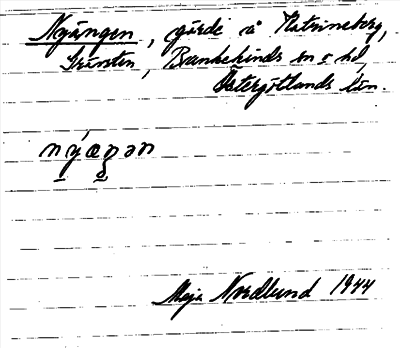 Nyängen, gärde å Katrineberg,
Grünsten, Bankekinds sn o hd,
Östergötlands län.
nýæŋən
Maja Nordlund 1944